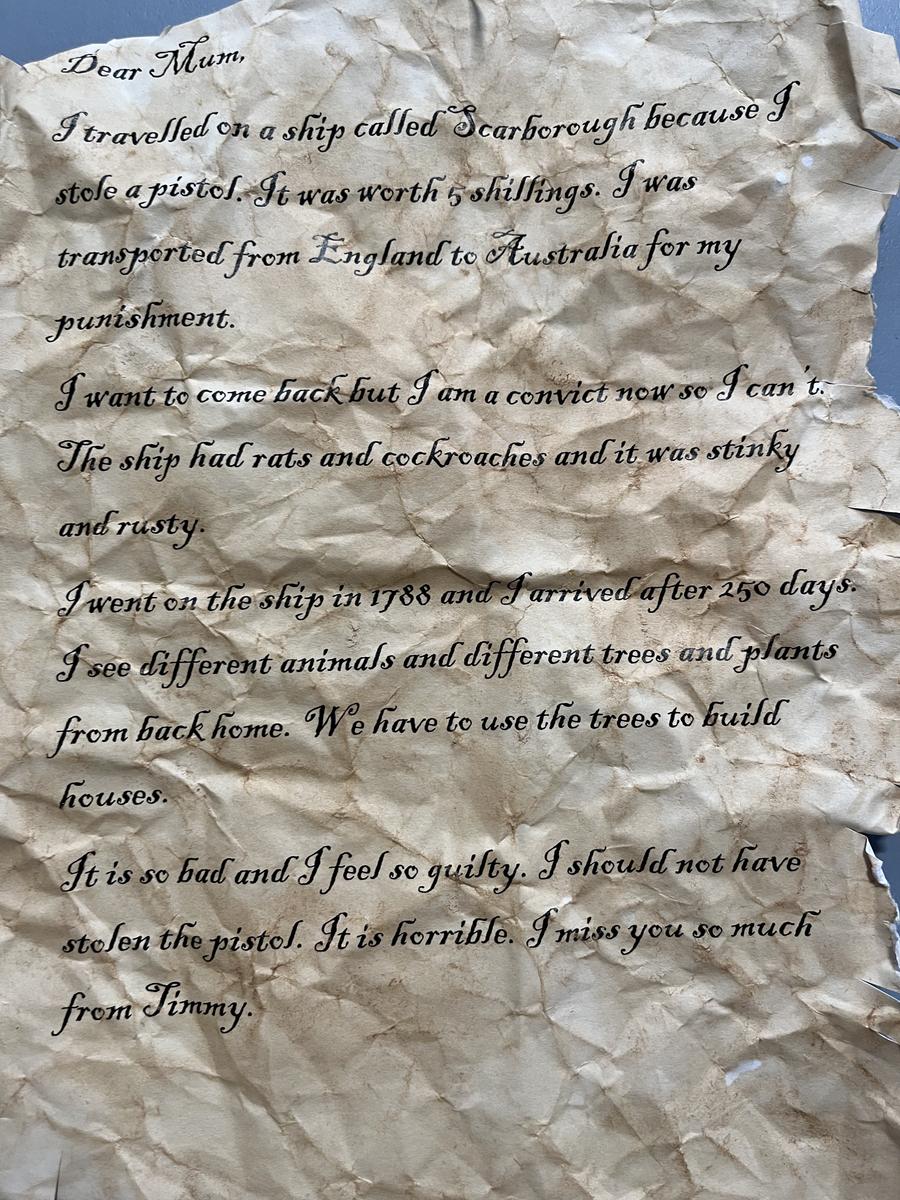 Dear Mum,
I travelled on a ship called Scarborough because I
stole a pistol. It was worth 5 shillings. I was
transported from England to Australia for my
punishment.
I want to come back but I am a convict now so I can't.
The ship had rats and cockroaches and it was stinky
and rusty.
I went on the ship in 1788 and I arrived after 250 days.
I see different animals and different trees and plants
from back home. We have to use the trees to build
houses.
It is so bad and I feel so guilty. I should not have
stolen the pistol. It is horrible. I miss you so much
from Timmy.